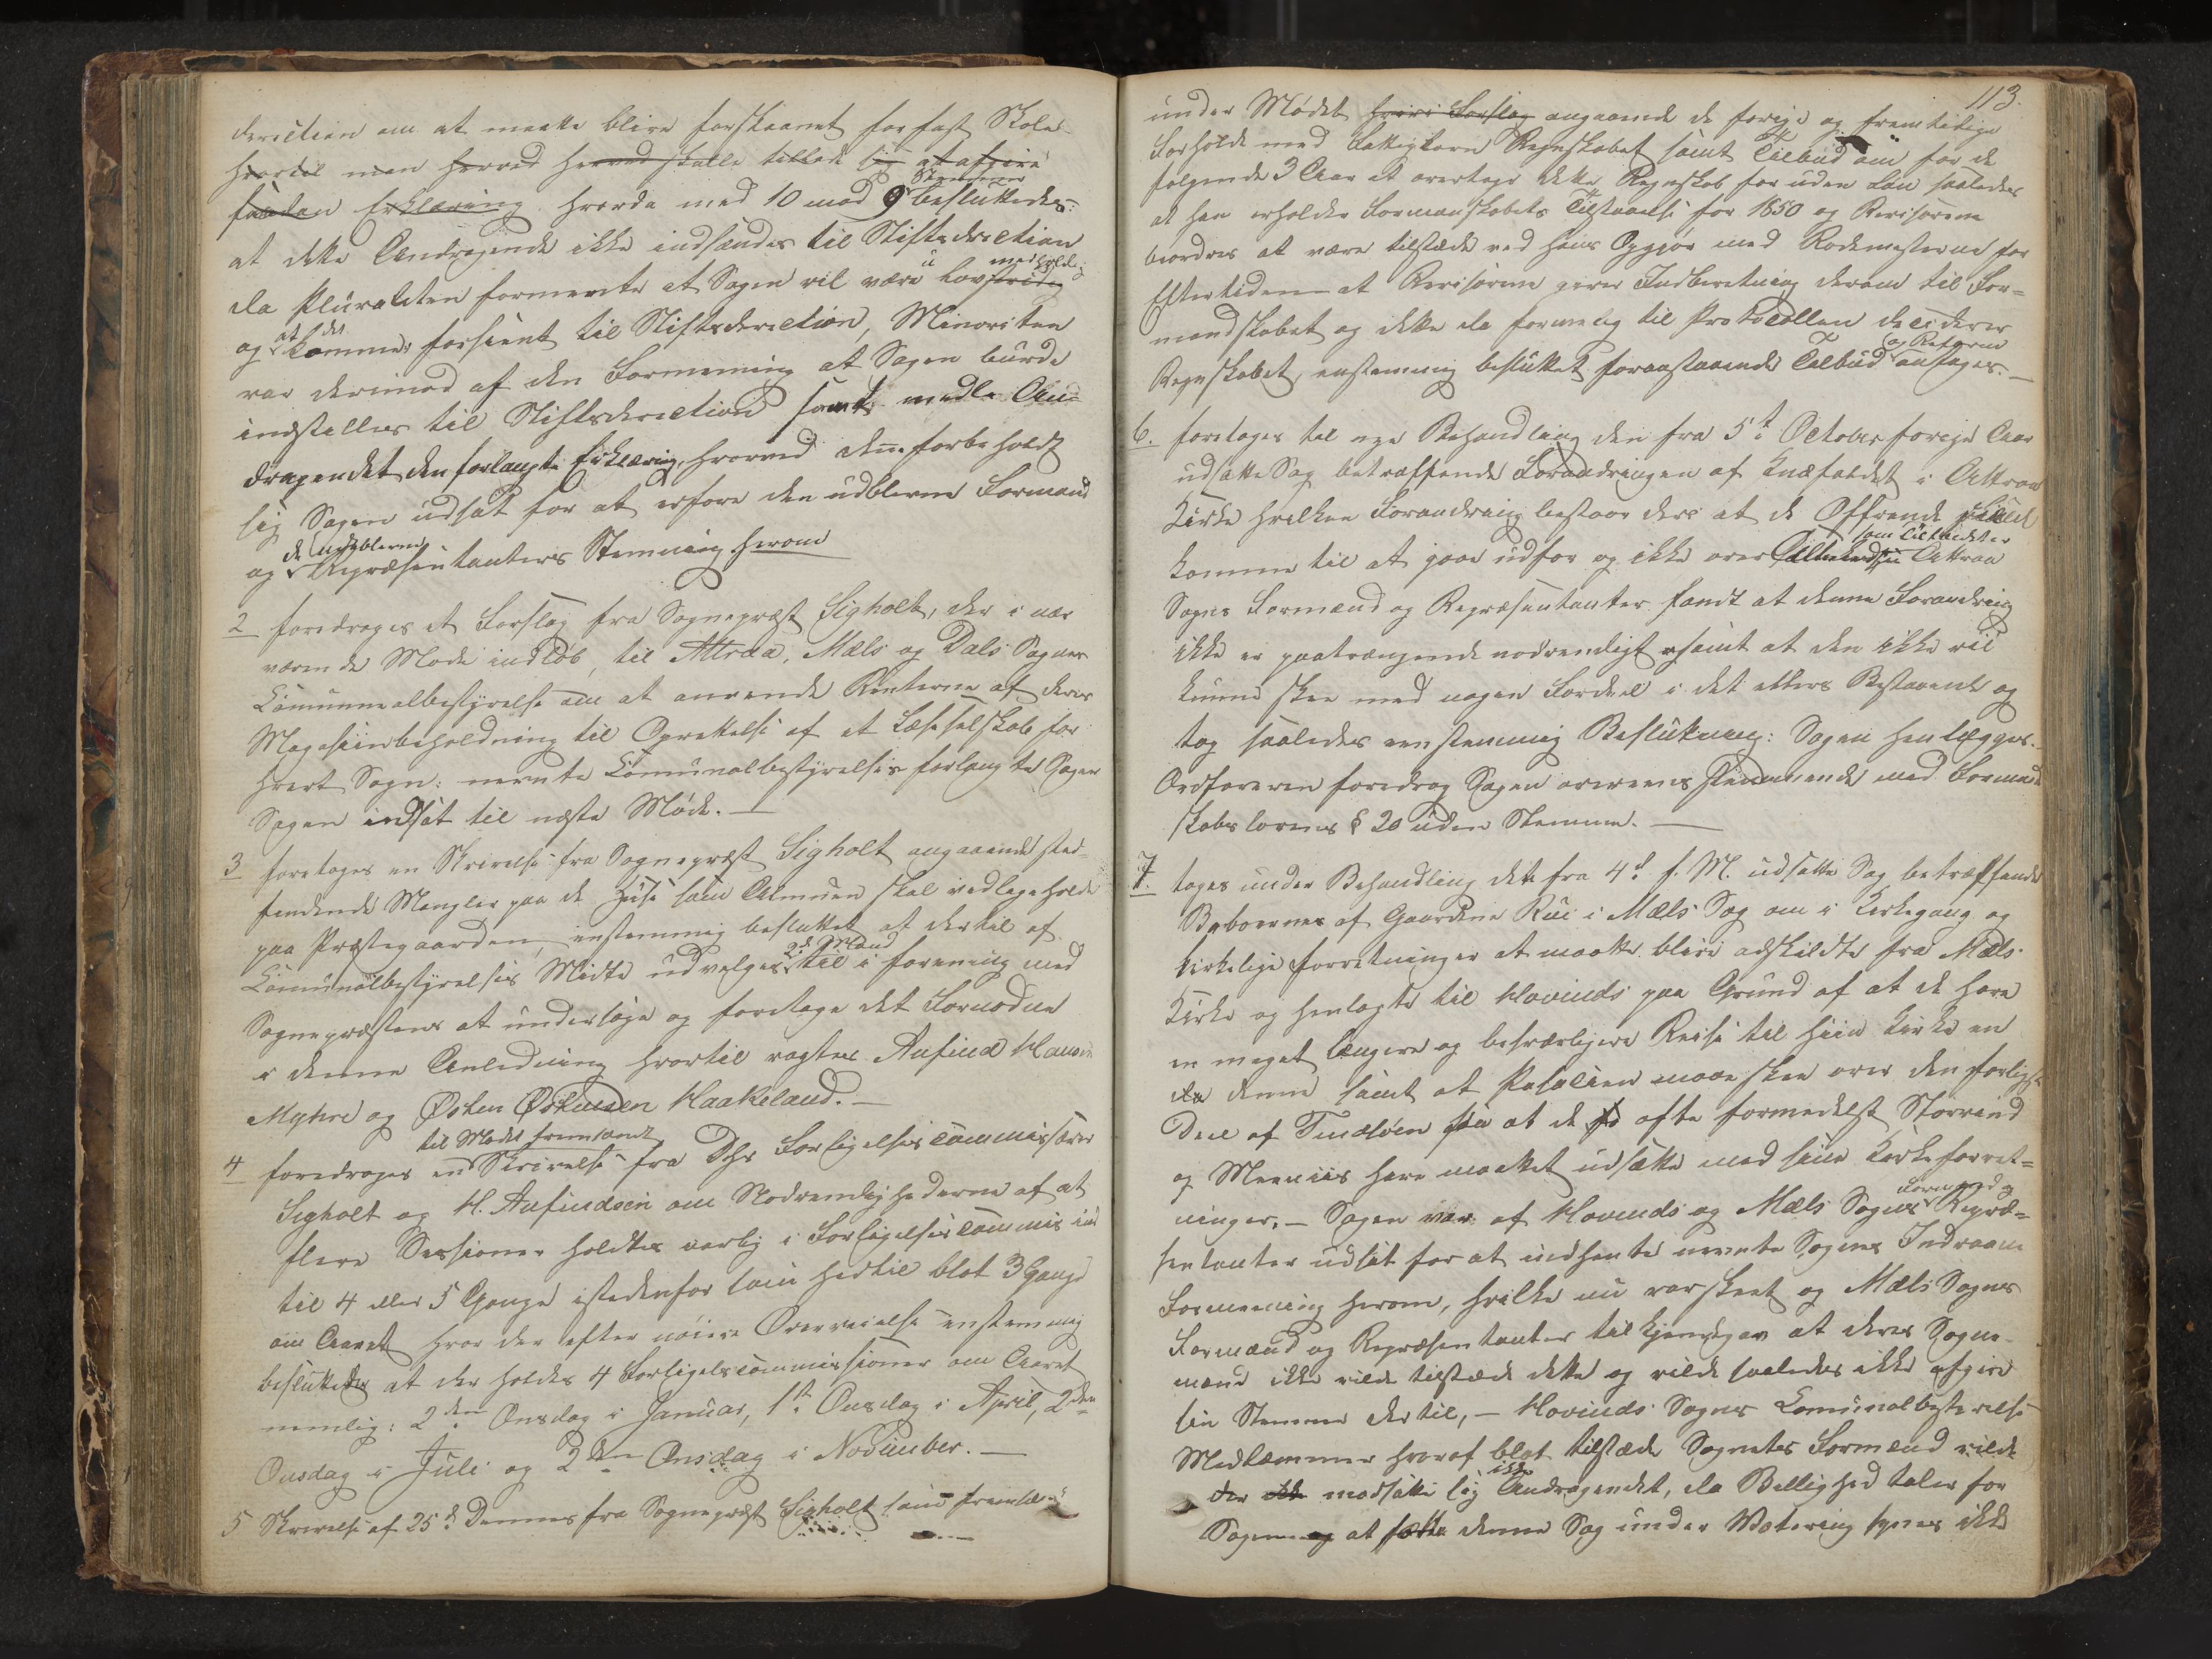 derection om at maatte blive forskaanet for fast Skole
hvortil man herved herved skulle tillade sig at afgive
saadan Erklæring. hvorda med 10 mod 9 Stemmer besluttedes:
at dette Andragende ikke indsendes til Stiftsdirection
da Pluraliteten formeente at Sagen vil være u lovmedholdig
og at den kommer forsient til Stiftsderection, Minoriten
var derimod af den Formening at Sagen burde
indstilles til Stiftsderection samt medle An-
dragendet den forlangte Erklæring, hvorved den forbeholdt
sig Sagen udsat for at erfare den udblevne Formand
og de udeblevne Repræsentanters Stemning herom
2 foredroges et Forslag fra Sognepræst Sigholt, der i nær
værende Møde indløb, til Attraa, Mæls og Dals Sognes
Communealbestyrelse om at anvende Renterne af deres
Magasiinbeholdning til Oprettelse af et Læseselskab for
hvert Sogn: nevnte Communalbestyrelse forlangte Sagen
Sagen udsat til næste Møde. —
3 foretoges en Skrivelse fra Sognepræst Sigholt angaaende sted-
findende Mangler paa de Huse som Almuen skal vedligeholde
paa Præstegaarden, enstemmig besluttet at dertil af
Communalbestyrelsens Midte udvelges 2de Mænd til i forening med
Sognepræsten at undersøge og foretage det Fornødne
i denne Anledning hvortil valgtes Anfind Hansen
Myhre og Østen Østensen Haakeland. —
4 foredroges en til Mødet fremsendt Skrivelse fra Dhr Forligelsescommissærer
Sigholt og H. Anfindsen om Nødvendighederne af at
flere Sessioner holdtes aarlig i Forligelsescommis ind
til 4 eller 5 Gange istedenfor som hertil blot 3 Gange
om Aaret hvor der efter nøiere Overveielse enstemmig
besluttedes at der holdes 4 Forligelscommissioner om Aaret
nemlig: 2den Onsdag i Januar, 1ste Onsdag i April, 2den
Onsdag i Juli og 2den Onsdag i November. —
5 Skrivelse af 25de Dennes fra Sognepræst Sigholt som fremlæ
113.
under Mødet hvori Forslag angaaende de forige og fremtidige
Forholde med Fattigkorn Regnskabet samt Tilbud om for de
følgende 3 Aar at overtage dette Regnskab for uden Løn saaledes
at han erholder Formandskabets Tilstaaelse for 1850 og Revisorene
beordres at være tilstæde ved hans Opgjør med Rodemesterne for
Eftertiden at Revisorerne giver Indberetning derom til For-
mandskabet og dette da formelig til Protocollen deciderer
Regnskabet, enstemmig besluttet foranstaaende Tilbud og Reform antages. —
6. foretoges til nye Behandling den fra 5te October forige Aar
udsatte Sag betræffende Forandringen af Knæfaldet i Attraa
Kirke hvilken Forandring bestaar deri at de Offrende skulde
komme til at gaae udfor og ikke over som Tilstædet er Attraa
Sogns Formænd og Repræsentanter fandt at denne Forandring
ikke er paatrængende nødvendigt samt at den ikke vil
kunne skee med nogen Fordeel i det alters Bestaaende og
tog saaledes eenstemmig Beslutning: Sagen henlægges.
Ordføreren foredrog Sagen overeensstemmende med Formand
skabslovens § 20 uden Stemme. —
7. toges under Behandling det fra 4de f. M. udsatte Sag betræffende
Beboernes af Gaardene Rui i Mæls Sog om i Kirkegang og
kirkelige forretninger at maatte blive adskildte fra Mæls
Kirke og henlagte til Hovinds paa Grund af at de have
en meget længere og besværligere Reise til hiin Kirke en
da denne samt at Passalien maae skee over den farligste
Deel af Tindsøen saa at de ofte formedelst Storvind
og Meeniis have maattet udsætte med sine Kirkeforret-
ninger. — Sagen var af Hovinds og Mæls Sognes Formænd og Repræ-
sentanter udsat for at indhente nevnte Sognes Indvaan
Formeening herom, hvilke nu var skeet og Mæls Sognes
Formænd og Repræsentanter tilkjendegav at deres Sogne-
mænd ikke vilde tilstæde dette og vilde saaledes ikke afgive
sin Stemme dertil, — Hovinds Sognes Comunalbestyrelse
Medlemmer hvoraf blot tilstæde Sognets Formænd vilde
der ikke modsætte sig Andragendet, da Billighed taler for
Sagen og at sætte denne Sag under Votering synes ikke